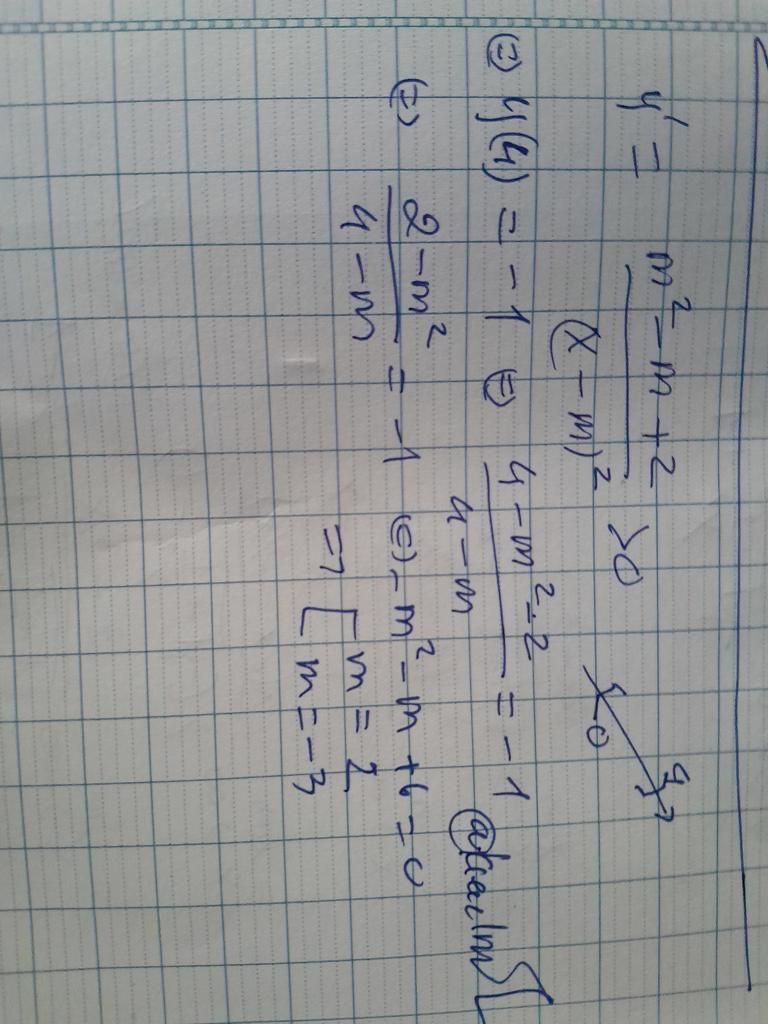 y' = \frac{m² - m + 2}{(x - m)²} > 0
0 4
(=) y(4) = -1 (=) \frac{4 - m² - 2}{4 - m} = -1
(=) \frac{2 - m²}{4 - m} = -1 (=) -m² - m + 6 = 0
=> [ m = 2
m = -3